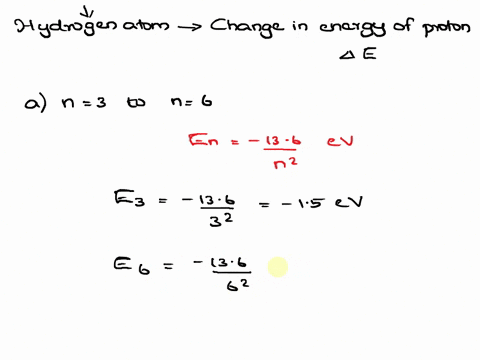 Hydrogen atom → Change in energy of proton
Δ E
a) n = 3 to n = 6
En = -13.6/n² eV
E3 = -13.6/3² = -1.5 eV
E6 = -13.6/6²